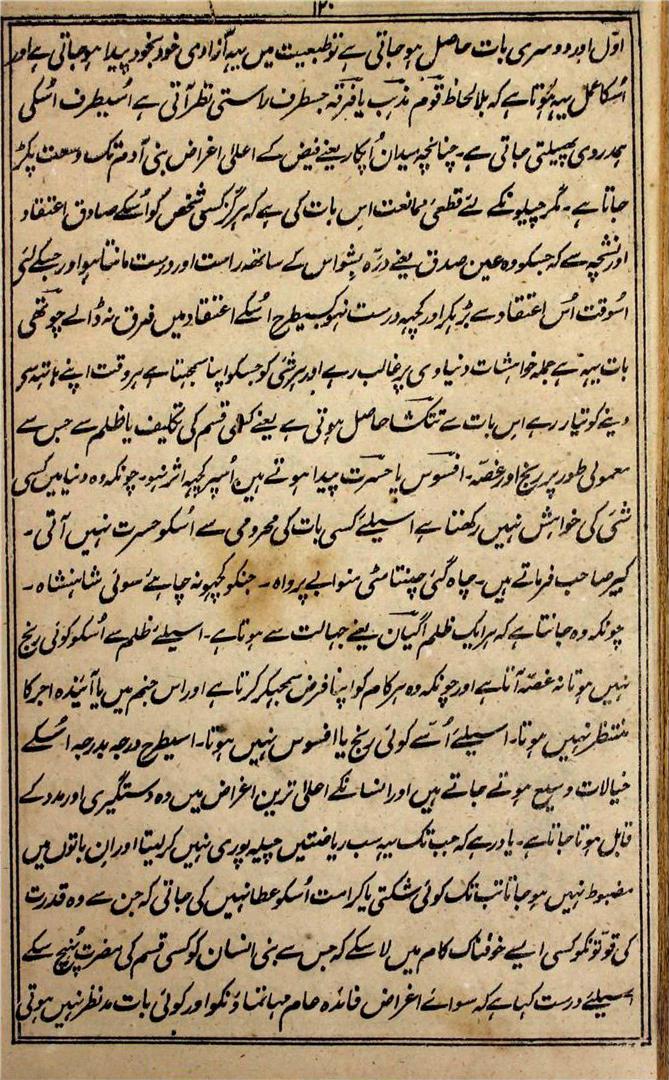 ۱۲۰
اوّل اور دوسری بات حاصل ہوجاتی ہے تو طبعیت میں یہہ آزادی خود بخود پیدا ہوجاتی ہے اور
اُسکا عمل یہہ ہوتا ہے کہ بلا لحاظ قوم مذہب یا فرقہ جسطرف راستی نظر آتی ہے اُسیطرف اُسکی
ہمدردی پھیلتی جاتی ہے۔ چنانچہ میدان اُپکار یعنے فیض کے اعلیٰ اغراض بنی آدم تک وسعت پکڑ
جاتا ہے۔ مگر چیلونکے لئے قطعی ممانعت اس بات کی ہے کہ ہرگز کسی شخص کو اُسکے صادق اعتقاد
اور نشچہ سے کہ جسکو وہ عین صدق یعنے درّہ بشواس کے ساتھہ راست اور درست مانتا ہو اور جسکے لئی
اسوقت اُس اعتقاد سے بڑہکر اور کچہہ درست نہو کسیطرح اُسکے اعتقاد میں فرق نہ ڈالے چوتھی
بات یہہ ہے جملہ خواہشات دنیاوی پر غالب رہے اور ہر شئی کو جسکو اپنا سمجہتا ہے ہر وقت اپنے ہاتہہ سے
دینے کو تیار رہے اس بات سے تتکشا حاصل ہوتی ہے یعنے کسی قسم کی تکلیف یا ظلم سے جس سے
معمولی طور پر رنج اور غصّہ۔ افسوس یا حسرت پیدا ہوتے ہیں اُسپر کچہہ اثر نہو۔ چونکہ وہ دنیا میں کسی
شئی کی خواہش نہیں رکھتا ہے اسیلئے کسی بات کی محرومی سے اُسکو حسرت نہیں آتی۔
کبیر صاحب فرماتے ہیں۔ چاہ گئی چنتا مٹی منوا بے پرواہ۔ جنکو کچہو نہ چاہئے سوئی شاہنشاہ۔
چونکہ وہ جانتا ہے کہ ہر ایک ظلم اگیان یعنے جہالت سے ہوتا ہے۔ اسیلئے ظلم سے اُسکو کوئی رنج
نہیں ہوتا نہ غصّہ آتا ہے اور چونکہ وہ ہر کام کو اپنا فرض سمجہکر کرتا ہے اور اس جنم میں یا آئیندہ اجر کا
منتظر نہیں ہوتا۔ اسیلئے اُسے کوئی رنج یا افسوس نہیں ہوتا۔ اسیطرح درجہ بدرجہ اسکے
خیالات وسیع ہوتے جاتے ہیں اور انسانکے اعلیٰ ترین اغراض میں وہ دستگیری اور مدد کے
قابل ہوتا جاتا ہے۔ یاد رہے کہ جب تک یہہ سب ریاضتیں چیلہ پوری نہیں کر لیتا اور ان باتوں میں
مضبوط نہیں ہوجاتا تب تک کوئی شکتی یا کرامت اُسکو عطا نہیں کی جاتی کہ جن سے وہ قدرت
کی قوّتونکو کسی ایسے خوفناک کام میں لا سکے کہ جس سے بنی انسان کو کسی قسم کی مضرت پُہنچ سکے
اسیلئے درست کہا ہے کہ سوائے اغراض فائدہ عام مہاتماؤنکو اور کوئی بات مدنظر نہیں ہوتی